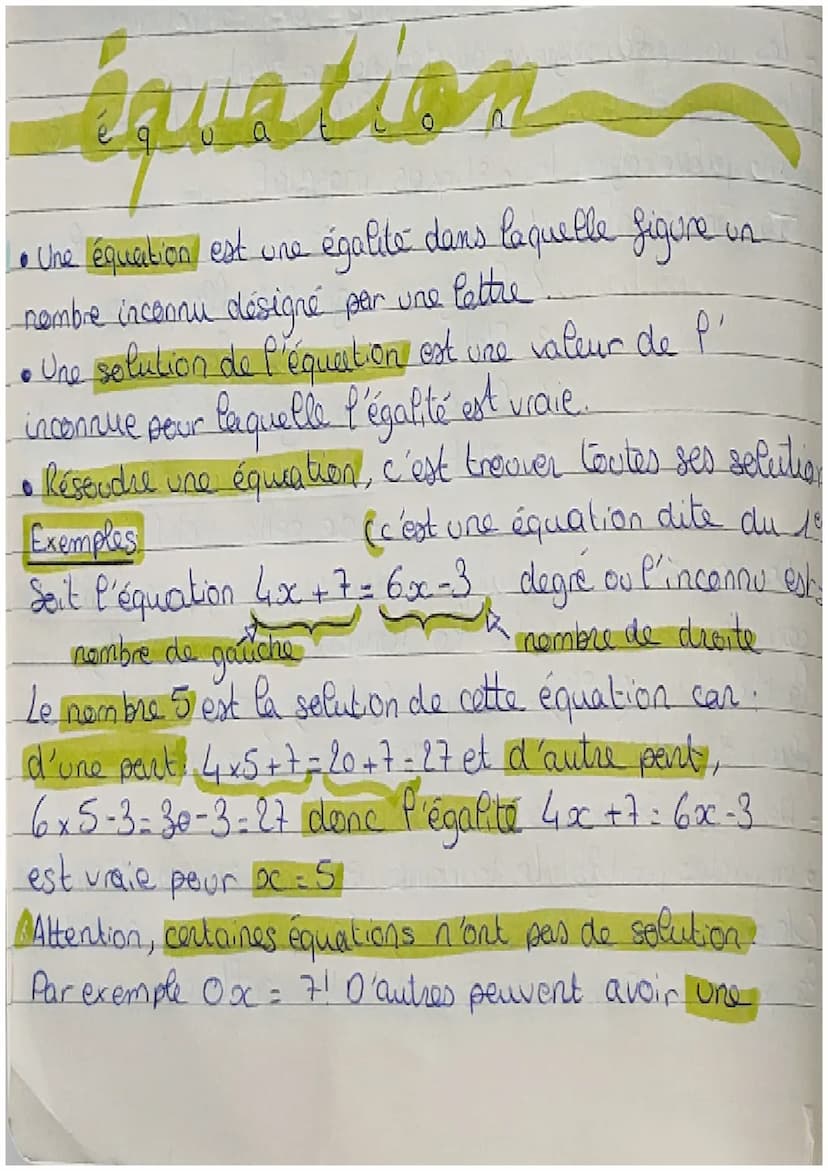 équation
équation
• Une équation est une égalité dans laquelle figure un
nombre inconnu désigné par une lettre.
• Une solution de l'équation est une valeur de l'
inconnue pour laquelle l'égalité est vraie.
• Résoudre une équation, c'est trouver toutes ses solution
Exemples: (c'est une équation dite du 1e
Soit l'équation 4x + 7 = 6x - 3 degré ou l'inconnu est
nombre de gauche nombre de droite
Le nombre 5 est la solution de cette équation car :
d'une part: 4x5+7 = 20+7 = 27 et d'autre part,
6x5-3 = 30-3 = 27 donc l'égalité 4x + 7 = 6x - 3
est vraie pour x = 5
Attention, certaines équations n'ont pas de solution.
Par exemple 0x = 7! D'autres peuvent avoir une